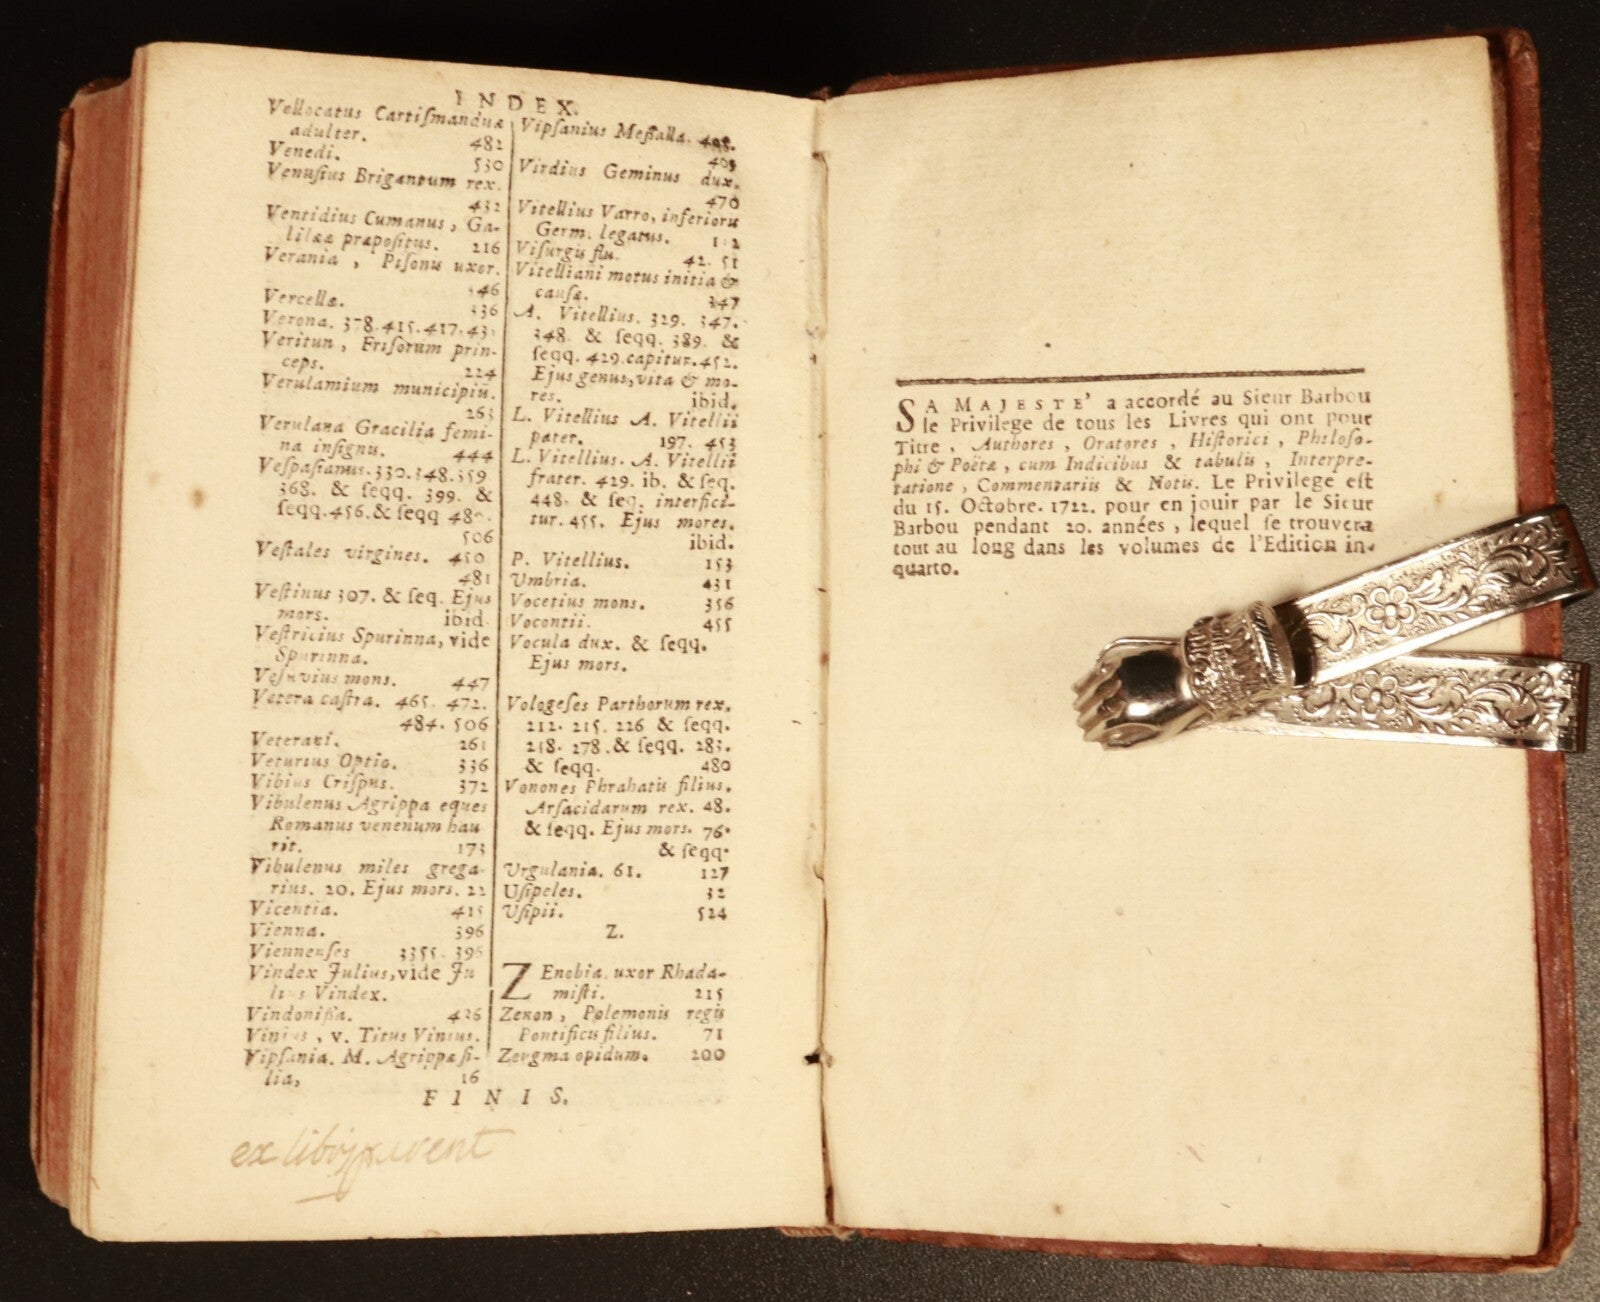 INDEX.
Vellocatus Cartiſmanduæ
adulter. 482
Venedi. 530
Venuſius Brigantum rex.
432
Ventidius Cumanus, Ga-
lilææ præpoſitus. 216
Verania, Piſonis uxor.
Vercellæ. 336
Verona. 378. 415. 417.
Veritun, Friſorum prin-
ceps. 224
Verulamium municipiū.
263
Verulana Gracilia femi-
na inſignis. 444
Veſpaſianus. 330. 348. 359
368. & ſeqq. 399. &
ſeqq. 456. & ſeqq
506
Veſtales virgines. 450
481
Veſtinus 307. & ſeq. Ejus
mors. ibid.
Veſtricius Spurinna, vide
Spurinna.
Veſuvius mons. 447
Vetera caſtra. 465. 472.
484. 506
Veterani. 261
Veturius Optio. 336
Vibius Criſpus. 372
Vibulenus Agrippa eques
Romanus venenum hau
rit. 173
Vibulenus miles grega-
rius. 20. Ejus mors. 22
Vicentia. 415
Vienna. 396
Viennenſes 3355. 396
Vindex Julius, vide Ju
lius Vindex.
Vindoniſſa. 426
Vinius, v. Titus Vinius.
Vipſania. M. Agrippæ fi-
lia, 16
Vipſanius Meſſalla. 408.
409
Virdius Geminus dux.
470
Vitellius Varro, inferioris
Germ. legatus.
Viſurgis flu. 42. 51
Vitelliani motus initia &
cauſæ. 347
A. Vitellius. 329. 347.
348. & ſeqq. 389. &
ſeqq. 429. capitur. 452.
Ejus genus, vita & mo-
res. ibid.
L. Vitellius A. Vitellii
pater. 197. 453
L. Vitellius. A. Vitellii
frater. 429. ib. & ſeq.
448. & ſeq. interfici-
tur. 455. Ejus mores.
ibid.
P. Vitellius. 153
Umbria. 431
Vocetius mons. 356
Vocontii. 455
Vocula dux. & ſeqq.
Ejus mors.
Vologeſes Parthorum rex.
212. 215. 226 & ſeqq.
238. 278. & ſeqq. 283.
& ſeqq. 480
Vonones Phrahatis filius.
Arſacidarum rex. 48.
& ſeqq. Ejus mors. 76.
& ſeqq.
Urgulania. 61. 127
Uſipetes. 32
Uſipii. 524
Z.
ZEnobia. uxor Rhada-
miſti. 215
Zenon, Polemonis regis
Pontificis filius. 71
Zevgma opidum. 200
FINIS.
ex
SA MAJESTE' a accordé au Sieur Barbou
le Privilege de tous les Livres qui ont pour
Titre, Authores, Oratores, Hiſtorici, Philoſo-
phi & Poëtæ, cum Indicibus & tabulis, Interpre-
tatione, Commentariis & Notis. Le Privilege eſt
du 15. Octobre. 1722. pour en jouir par le Sieur
Barbou pendant 20. années, lequel ſe trouvera
tout au long dans les volumes de l'Edition in-
quarto.